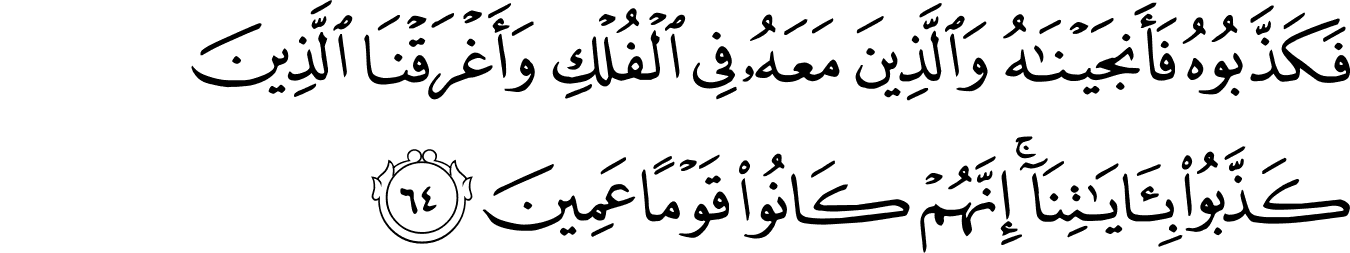 فَكَذَّبُوهُ فَأَنجَيْنَٰهُ وَٱلَّذِينَ مَعَهُۥ فِى ٱلْفُلْكِ وَأَغْرَقْنَا ٱلَّذِينَ
كَذَّبُوا۟ بِـَٔايَٰتِنَآ ۚ إِنَّهُمْ كَانُوا۟ قَوْمًا عَمِينَ ٦٤